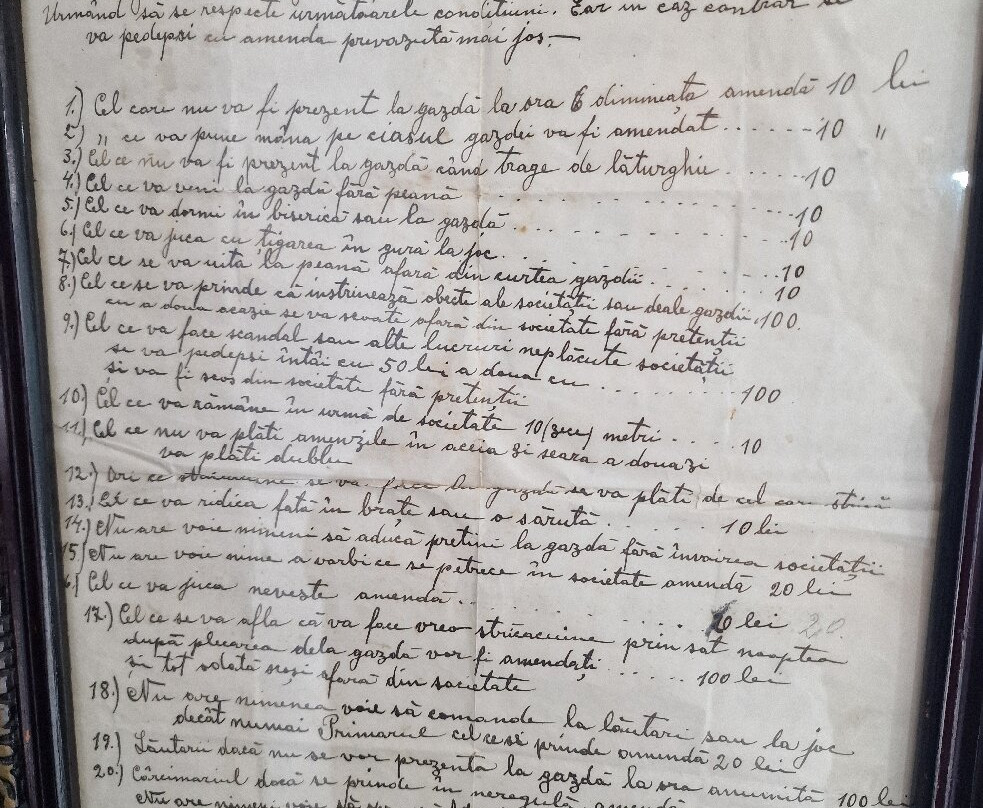 Urmând să se respecte următoarele condițiuni. Ear in caz contrar se
va pedepsi cu amenda prevazută mai jos.—
1.) Cel care nu va fi prezent la gazdă la ora 6 dimineața amendă 10 lei
2.) " ce va pune mâna pe ciasul gazdei va fi amendat ...... 10 "
3.) Cel ce nu va fi prezent la gazdă când trage de lăturghie ...... 10
4.) Cel ce va veni la gazdă fără peană ...... 10
5.) Cel ce va dormi în biserică sau la gazdă ...... 10
6.) Cel ce va juca cu țigarea în gură la joc ...... 10
7.) Cel ce se va uita la peană afară din curtea gazdii ...... 10
8.) Cel ce se va prinde că instrinează obecte ale societății sau deale gazdii 100.
cu a doua ocazie se va scoate afară din societate fără pretenții
9.) Cel ce va face scandal sau alte lucruri neplăcute societății
se va pedepsi întâi cu 50 lei a doua cu ...... 100
și va fi scos din societate fără pretenții
10.) Cel ce va rămâne în urmă de societate 10 (zece) metri .... 10
11.) Cel ce nu va plăti amenzile în aceia zi seara a doua zi
va plăti dublu
12.) Ori ce se va face la gazdă se va plăti de cel care strică
13.) Cel ce va ridica fată în brațe sau o sărută ...... 10 lei
14.) Nu are voie nimeni să aducă pretini la gazdă fără învoirea societății
15.) Nu are voie nime a vorbi ce se petrece în societate amendă 20 lei
16.) Cel ce va juca neveste amendă ...... lei 20.
17.) Cel ce se va afla că va face vreo stricaciune prin sat noaptea
după plecarea dela gazdă vor fi amendați ...... 100 lei
și tot odată scoși afară din societate
18.) Nu are nimenea voie să comande la lăutari sau la joc
decât numai Primarul cel ce se prinde amendă 20 lei
19.) Lăutarii dacă nu se vor prezenta la gazdă la ora anumită 100 lei
20.) Cârcimariul dacă se prinde în neregulă amendă
Nu are nimeni voie să